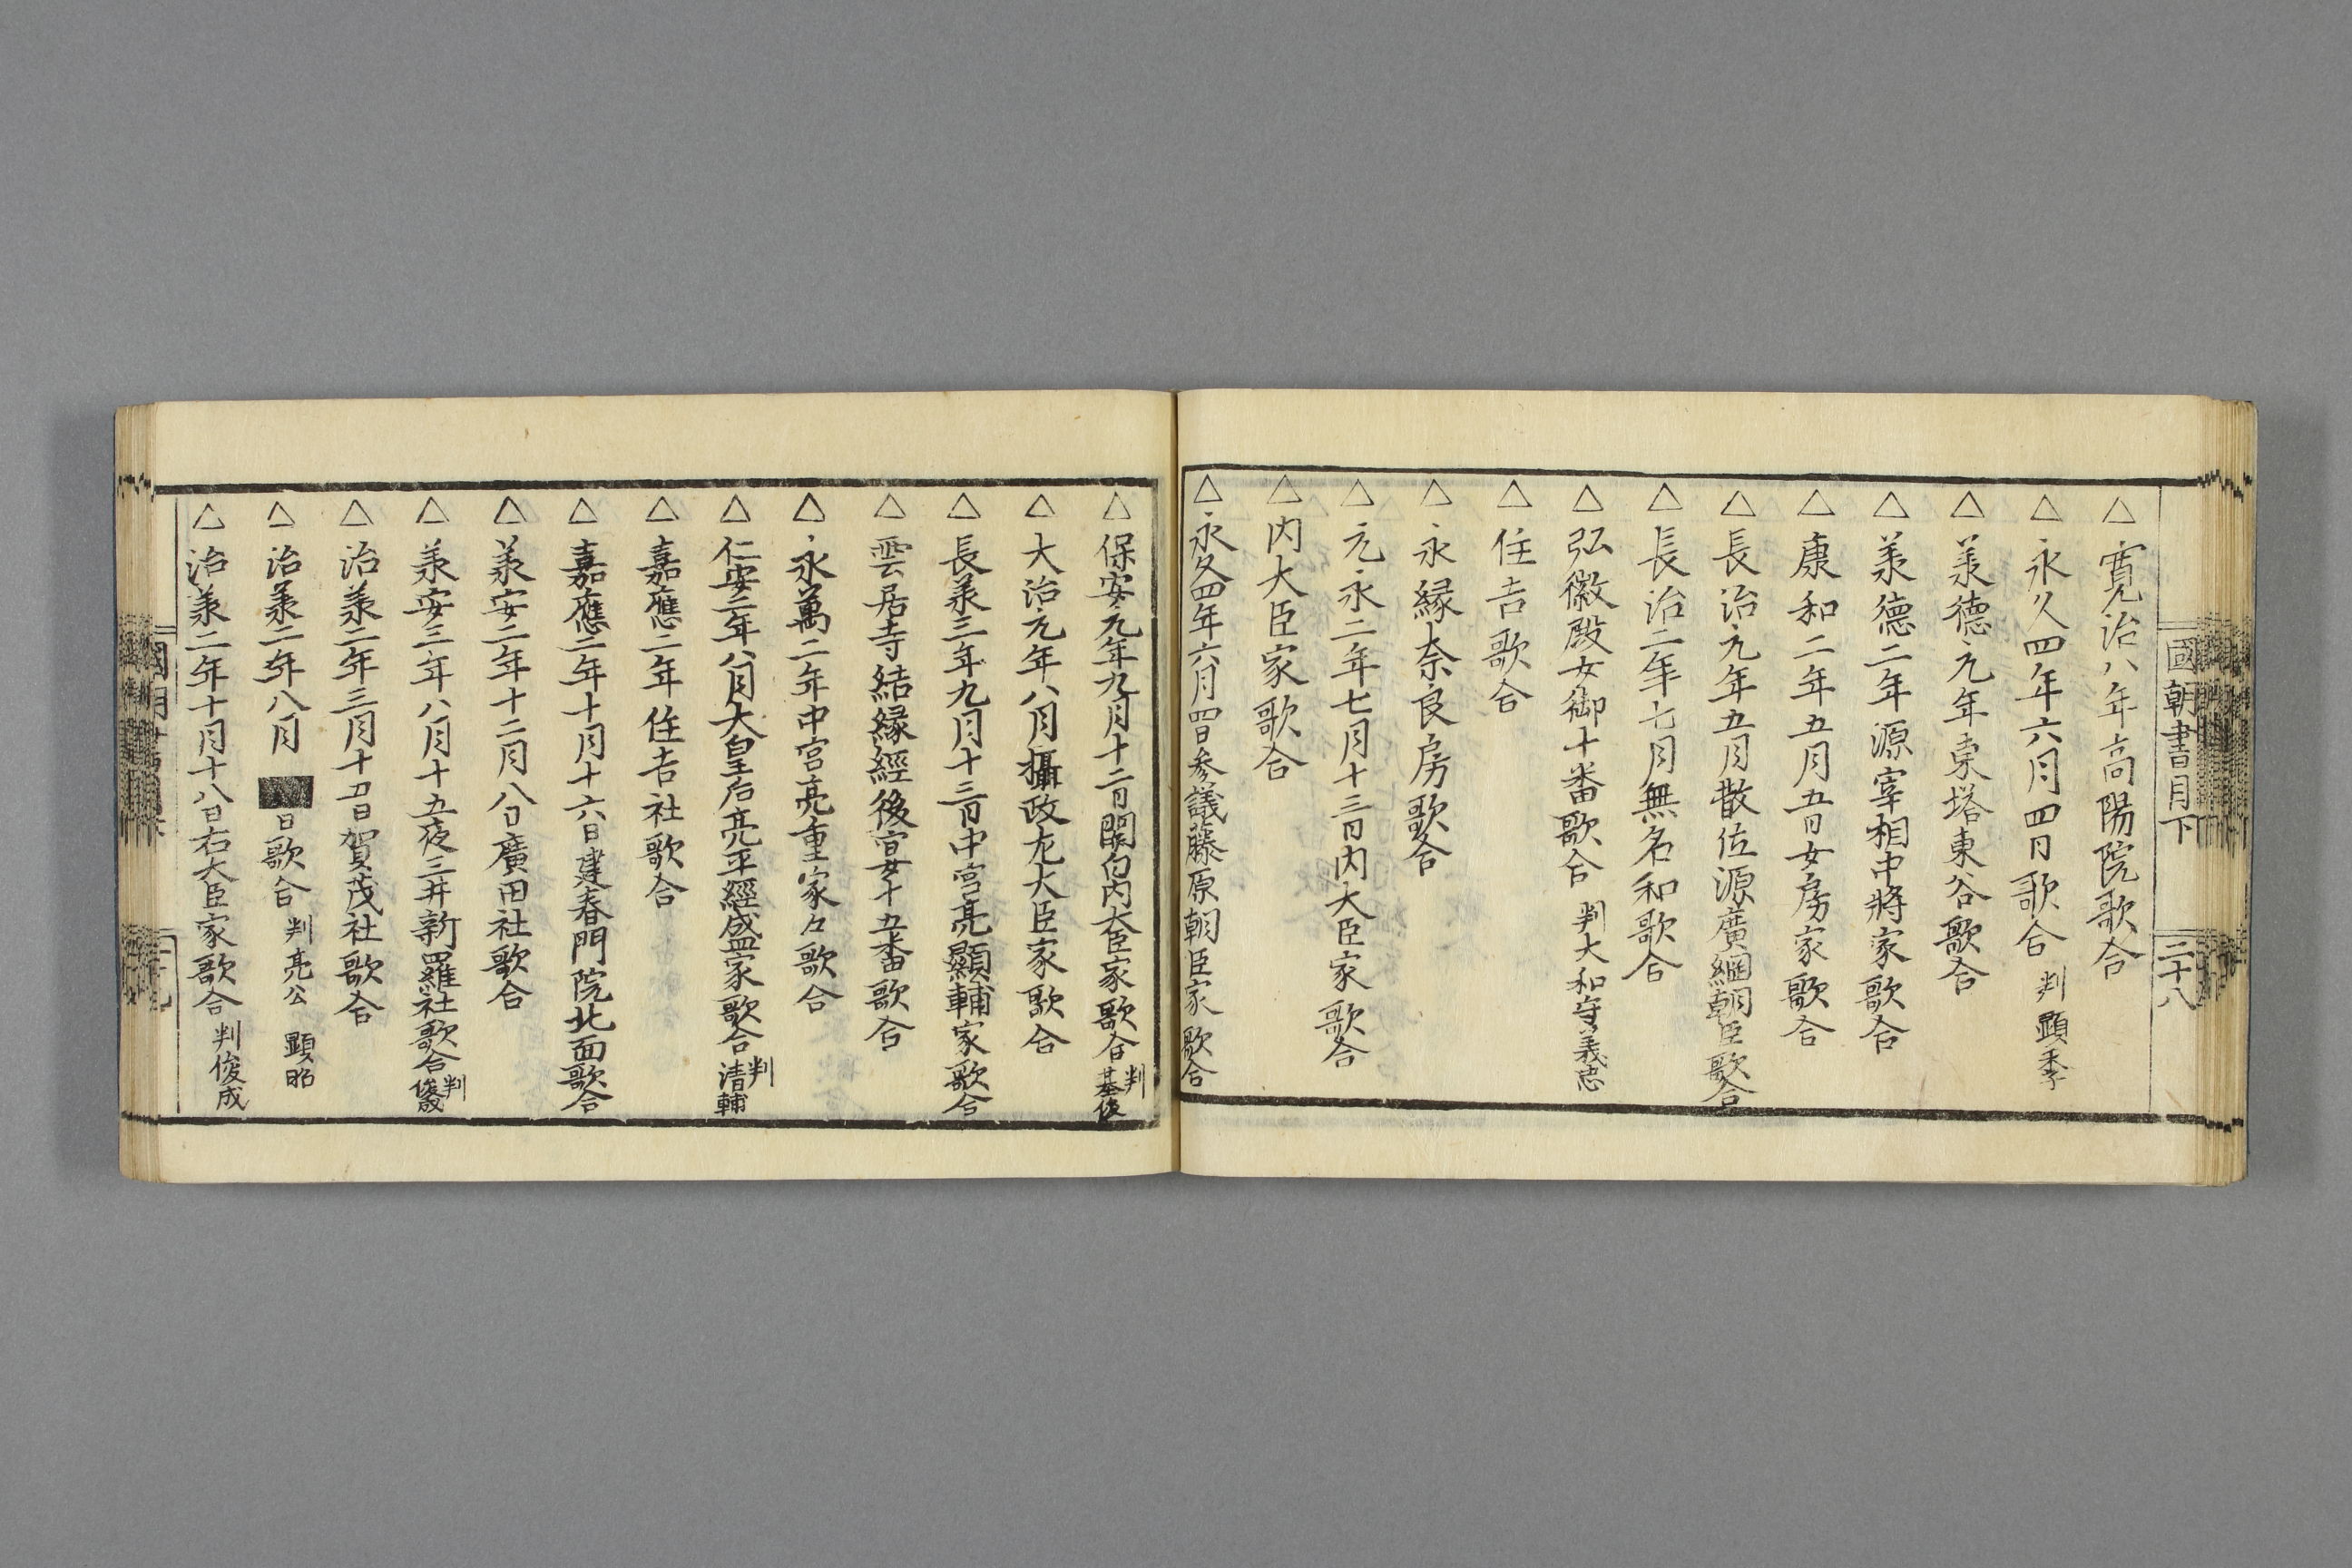 國朝書目下 二十八
△ 寛治八年高陽院歌合
△ 永久四年六月四日歌合 判 顯季
△ 羕德元年東塔東谷歌合
△ 羕德二年源宰相中將家歌合
△ 康和二年五月五日女房家歌合
△ 長治元年五月散位源廣綱朝臣歌合
△ 長治二年七月無名和歌合
△ 弘徽殿女御十番歌合 判大和守義忠
△ 住吉歌合
△ 永縁奈良房歌合
△ 元永二年七月十三日内大臣家歌合
△ 内大臣家歌合
△ 永久四年六月四日参議藤原朝臣家歌合
△ 保安元年九月十二日関白内大臣家歌合 判基俊
△ 大治元年八月攝政左大臣家歌合
△ 長羕三年九月十三日中宮亮顯輔家歌合
△ 雲居寺結縁經後宴十五番歌合
△ 永萬二年中宮亮重家々歌合
△ 仁安二年八月大皇后亮平經盛家歌合 判清輔
△ 嘉應二年住吉社歌合
△ 嘉應二年十月十六日建春門院北面歌合
△ 羕安二年十二月八日廣田社歌合
△ 羕安三年八月十五夜三井新羅社歌合 判俊成
△ 治羕二年三月十五日賀茂社歌合
△ 治羕二年八月 日歌合 判亮公 顯昭
△ 治羕二年十月十八日右大臣家歌合 判俊成